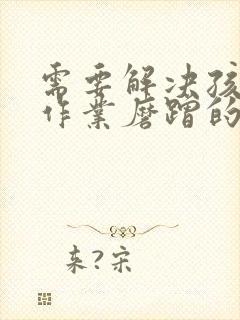 需要解决孩
作业磨蹭的
来?宋